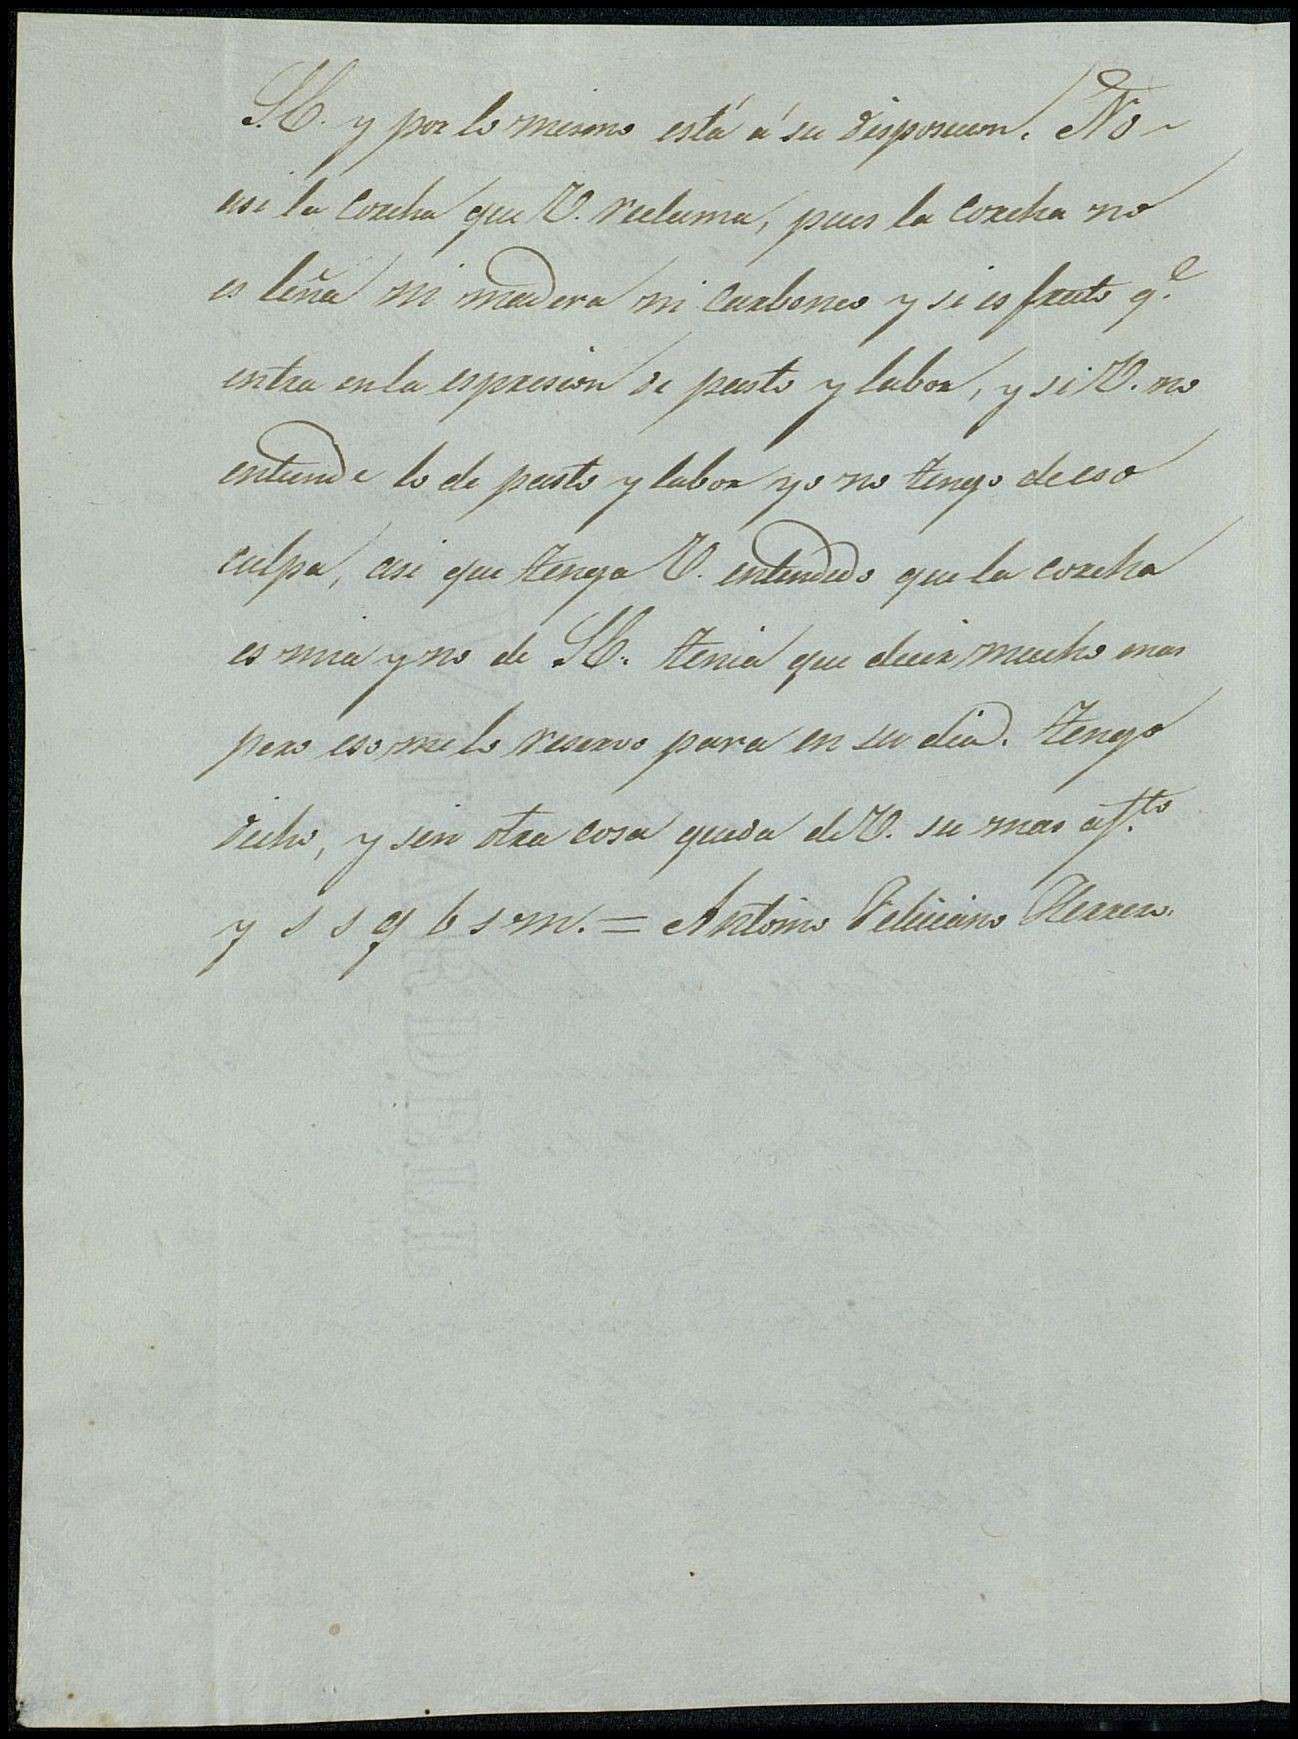 S.E. y por lo mismo está á su disposicion. No
asi la corcha que V. reclama, pues la corcha no
es leña ni madera ni carboneo y si es fruto q.e
entra en la espresion de pasto y labor, y si V. no
entiende lo de pasto y labor yo no tengo de eso
culpa, asi que tenga V. entendido que la corcha
es mia y no de S.E. tenia que decir mucho mas
pero eso me lo reservo para en su dia. tengo
dicho, y sin otra cosa queda de V. su mas af.to
y s s q b s m. = Antonio Feliciano Herrero.